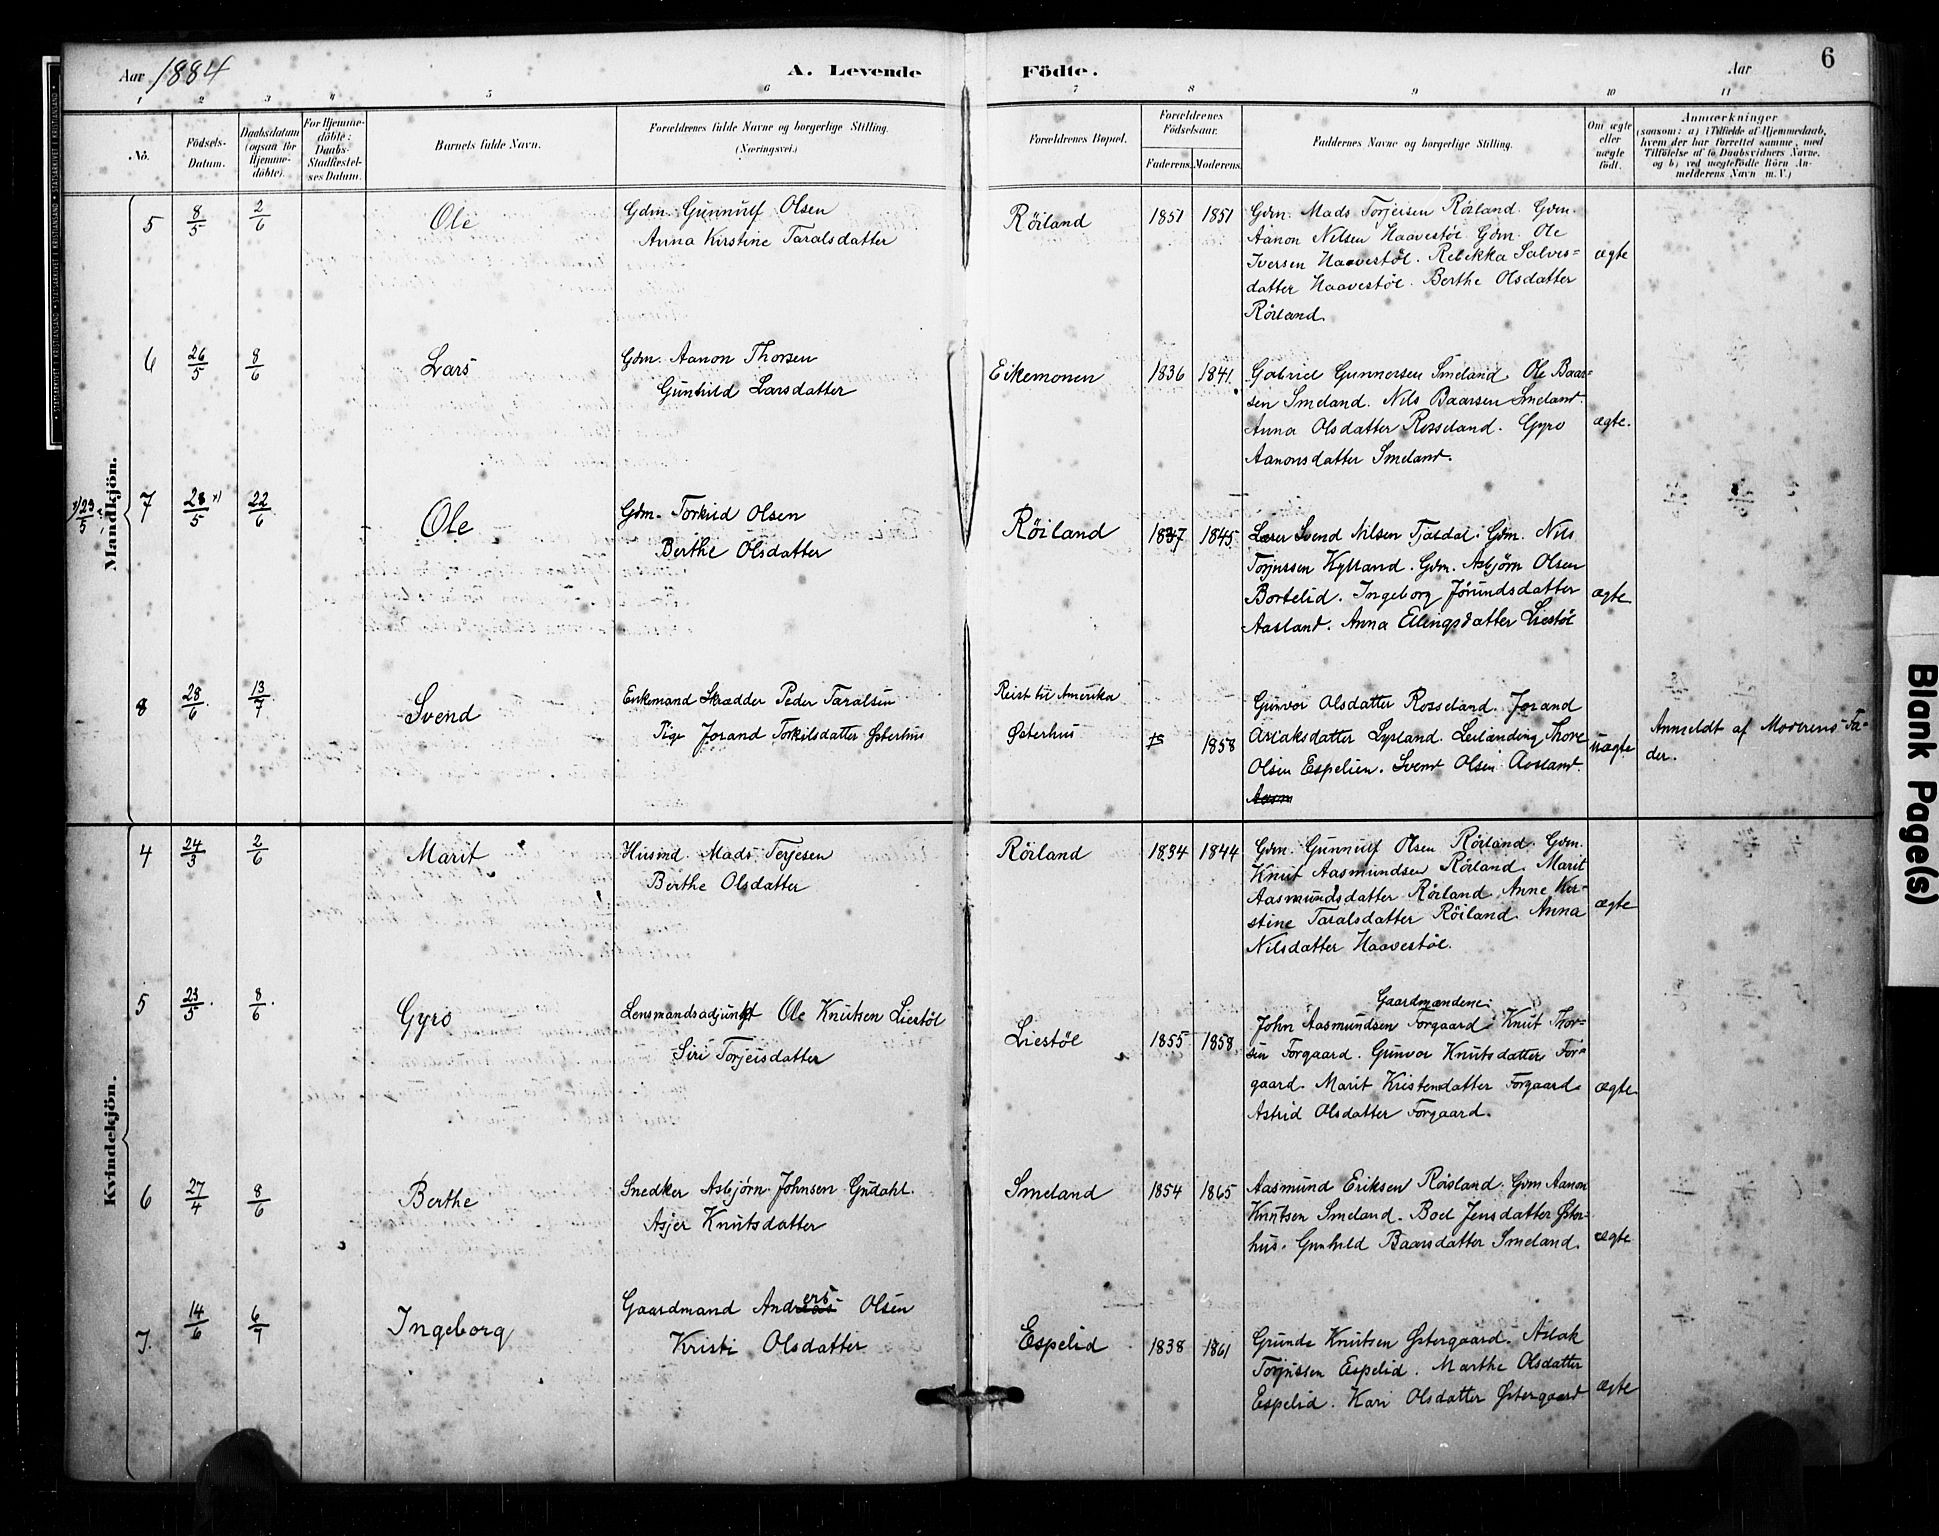 Aar 1884
A. Levende Födte.
Aar
6
1 2 3 4 5 6 7 8 9 10 11
No.
Födsels-Datum.
Daabsdatum (ogsaa for Hjemmedöbte).
For Hjemmedöbte: Daabs-Stadfæstelses Datum.
Barnets fulde Navn.
Forældrenes fulde Navne og borgerlige Stilling. (Næringsvei.)
Forældrenes Bopæl.
Forældrenes Födselsaar.
Faderens. Moderens.
Faddernes Navne og borgerlige Stilling.
Om ægte eller uægte født.
Anmærkninger
(saasom: a) i Tilfælde af Hjemmedaab, hvem der har forrettet samme, med Tilföielse af to Daabsvidners Navne, og b) ved uægtefödte Börn Anmelderens Navn m. V.)
Mandkjön.
5 8/5 2/6 Ole
Gdm. Gunnulf Olsen
Anna Kirstine Taralsdatter
Röiland 1851 1851
Gdm. Mads Torjeisen Röiland. Gdm.
Aanon Nilsen Haavestöl Gdm. Ole
Iversen Haavestöl. Rebekka Salves-
datter Haavestöl. Berthe Olsdatter
Röiland.
ægte
6 26/5 8/6 Lars
Gdm. Aanon Thorsen
Gunhild Larsdatter
Eikemonen 1836 1841.
Gabriel Gunnersen Smeland Ole Baar-
sen Smeland. Nils Baarsen Smeland.
Anna Olsdatter Rosseland. Gyro
Aanonsdatter Smeland.
ægte.
x/ 23/5
7 28/5 x) 22/6 Ole
Gdm. Torkild Olsen
Berthe Olsdatter
Röiland 1837 1845
Lærer Svend Nilsen Tjasdal. Gdm. Nils
Torjussen Kylland. Gdm. Asbjörn Olsen
Bortelid. Ingeborg Jörundsdatter
Aasland. Anna Ellingsdatter Liestöl
ægte
8 28/6. 13/7. Svend
Enkemand Skrædder Peder Taralsen
Pige Jorand Torkilsdatter Østerhus
Reist til Amerika
Østerhus 18 1858
Gunvor Olsdatter Rosseland. Jorand
Aslaksdatter Lysland. Leilænding Thore
Olsen Espelien. Svend Olsen Aasland.
Aasm
uægte
Anmeldt af Moderens Fa-
der.
Kvindekjön.
4 24/3 2/6 Marit
Husmd. Mads Terjesen
Berthe Olsdatter
Röiland 1834 1844
Gdm. Gunnulf Olsen Röiland. Gdm.
Knut Aasmundsen Röiland. Marit
Aasmundsdatter Röiland Anne Kir-
stine Taralsdatter Röiland. Anna
Nilsdatter Haavestöl.
ægte
5 23/5. 8/6. Gyro
Lensmandsadjunkt Ole Knutsen Liestöl
Siri Torjeisdatter
Liestöl 1855 1858
Gaardmændene:
John Aasmundsen Forgaard. Knut Thor-
sen Forgaard. Gunvor Knutsdatter For-
gaard. Marit Kristensdatter Forgaard.
Astrid Olsdatter Forgaard.
ægte.
6 27/4 8/6 Berthe
Snedker Asbjørn Johnsen Gudahl.
Asjer Knutsdatter
Smeland 1854 1865
Aasmund Eriksen Röisland. Gdm Aanon
Knutsen Smeland. Boel Jensdatter Øster-
hus. Gunhild Baarsdatter Smeland.
ægte
7. 14/6 6/7 Ingeborg
Gaardmand Anders Olsen
Kristi Olsdatter
Espelid 1838 1861
Grunde Knutsen Østergaard. Aslak
Torjussen Espelid. Marthe Olsdatter
Espelid. Kari Olsdatter Østergaard
ægte
Blank Page(s)
STATSARKIVET I KRISTIANSAND